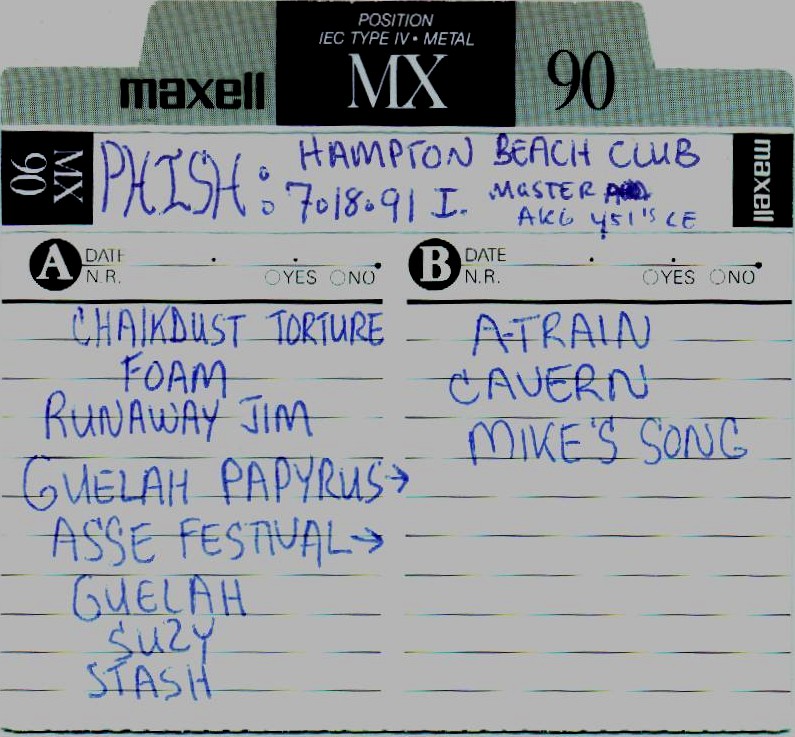 POSITION
IEC TYPE IV • METAL
maxell MX 90
MX 90
PHISH: HAMPTON BEACH CLUB
7.18.91 I. MASTER
AKG 451's CE
maxell
A DATE
N.R. YES NO
B DATE
N.R. YES NO
CHALKDUST TORTURE
FOAM
RUNAWAY JIM
GUELAH PAPYRUS→
ASSE FESTIVAL→
GUELAH
SUZY
STASH
A-TRAIN
CAVERN
MIKE'S SONG